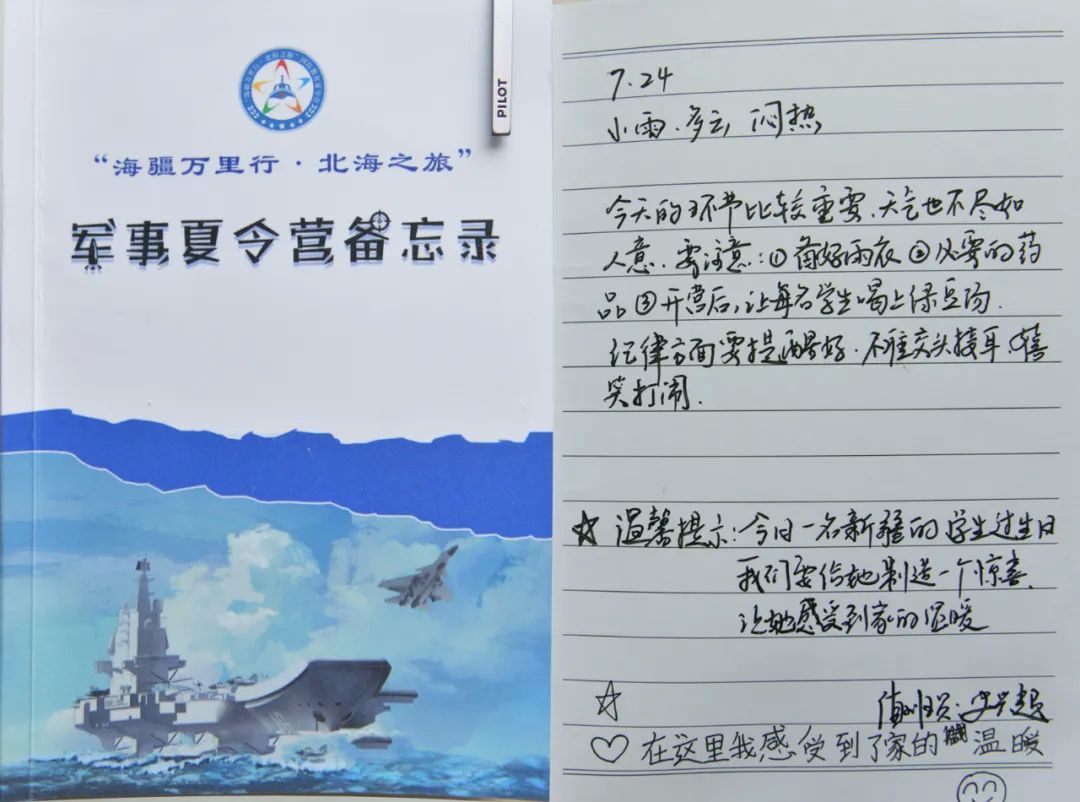 PILOT
“海疆万里行·北海之旅”
军事夏令营备忘录
7.24
小雨.多云 闷热
今天的环节比较重要.天气也不尽如
人意.要注意:①备好雨衣②必要的药
品③开营后,让每名学生喝上绿豆汤.
纪律方面要提醒好.不准交头接耳.嘻
笑打闹.
☆温馨提示:今日一名新疆的学生过生日
我们要给她制造一个惊喜.
让她感受到家的温暖
☆
♡在这里我感受到了家的温暖